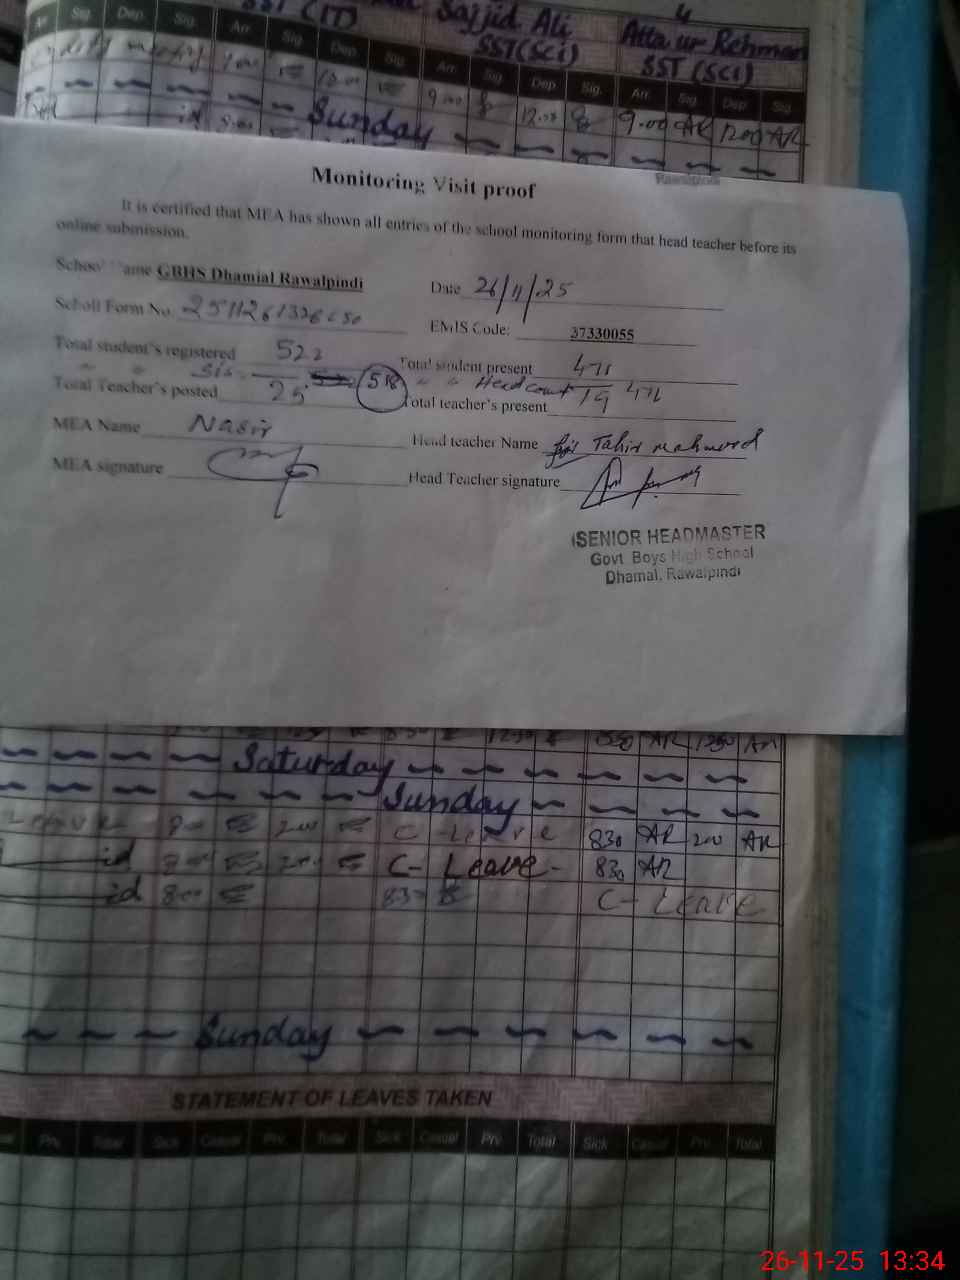 SST (IT) Sajjid Ali 4
SST (Sci) Atta ur Rehman
SST (Sci)
Arr. Sig. Dep. Sig. Arr. Sig. Dep. Sig. Arr. Sig. Dep. Sig. Arr. Sig. Dep. Sig.
9.00 12.00 9.00 AR 1200 AR
Sunday
Rawalpindi
Monitoring Visit proof
It is certified that MEA has shown all entries of the school monitoring form that head teacher before its
online submission.
School Name GBHS Dhamial Rawalpindi Date 26/11/25
Scholl Form No. EMIS Code: 37330055
Total student's registered 522 Total student present 471
" " SIS 518 " " Head count 471
Total Teacher's posted 25 Total teacher's present 19
MEA Name Nasir Head teacher Name Tahir mahmood
MEA signature Head Teacher signature
SENIOR HEADMASTER
Govt Boys High School
Dhamal, Rawalpindi
830 AR 1230 AR
Saturday
Sunday
800 200 C-Leave 830 AR 200 AR
id 800 200 C-Leave- 830 AR
id 800 830 C-Leave
Sunday
STATEMENT OF LEAVES TAKEN
Prv. Total Sick Casual Prv. Total Sick Casual Prv. Total Sick Casual Prv. Total
26-11-25 13:34